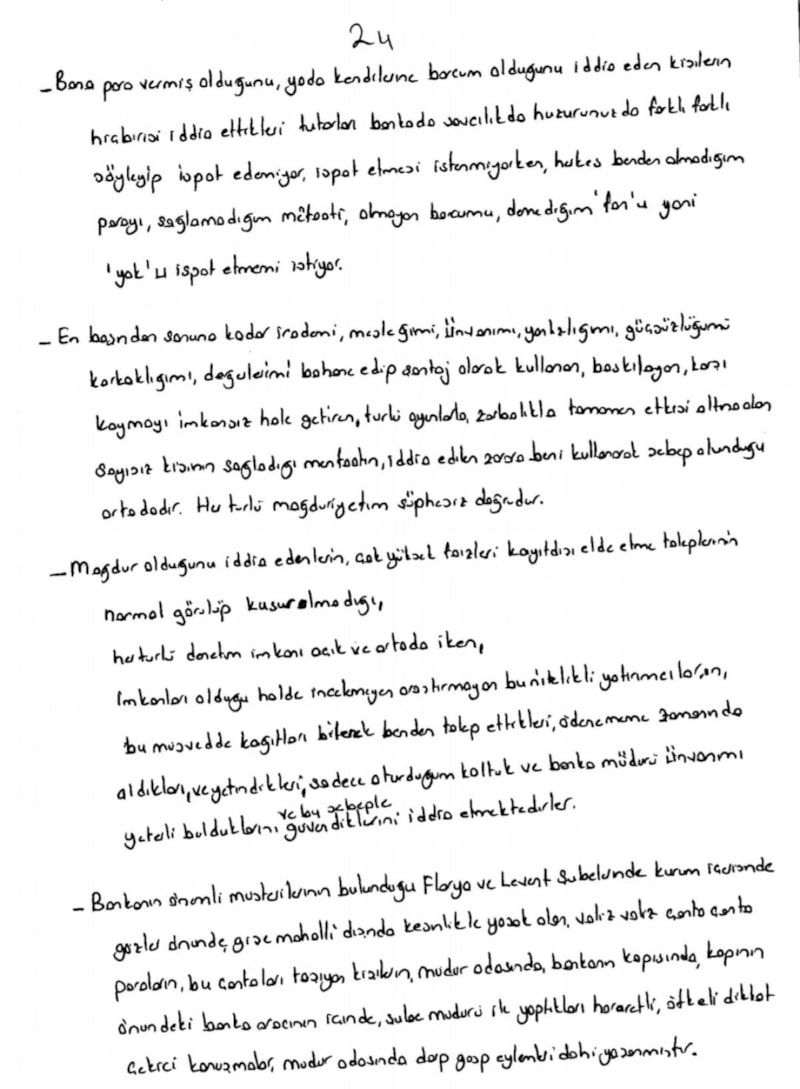 24
- Bana para vermiş olduğunu, yada kendilerine borcum olduğunu iddia eden kişilerin
hiçbirisi iddia ettikleri tutarları bankada savcılıkda huzurunuzda farklı farklı
söyleyip ispat edemiyor, ispat etmesi istenmiyorken, herkes benden almadığım
parayı, sağlamadığım menfaati, olmayan borcumu, denediğim 'fon'u yani
'yok'u ispat etmemi istiyor.
- En başından sonuna kadar irademi, mesleğimi, ünvanımı, yalnızlığımı, güçsüzlüğümü
korkaklığımı, değerlerimi bahane edip şantaj olarak kullanan, baskılayan, karşı
koymayı imkansız hale getiren, türlü oyunlarla, zorbalıkla tamamen etkisi altına alan
sayısız kişinin sağladığı menfaatın, iddia edilen zarara beni kullanarak sebep olunduğu
ortadadır. Her türlü mağduriyetim şüphesiz doğrudur.
- Mağdur olduğunu iddia edenlerin, çok yüksek faizleri kayıtdışı elde etme taleplerinin
normal görülüp kusur olmadığı,
her türlü denetim imkanı açık ve ortada iken,
imkanları olduğu halde incelemeyen araştırmayan bu nitelikli yatırımcıların,
bu müsvedde kağıtları bilerek benden talep ettikleri, ödenememe zamanında
aldıkları, ve yetindikleri, sadece oturduğum koltuk ve banka müdürü ünvanımı
yeterli bulduklarını ve bu sebeple güvendiklerini iddia etmektedirler.
- Bankanın önemli müşterilerinin bulunduğu Florya ve Levent Şubelerinde kurum içerisinde
gözler önünde, gişe mahalli dışında kesinlikle yasak olan, valiz valiz çanta çanta
paraların, bu çantaları taşıyan kişilerin, müdür odasında, bankanın kapısında, kapının
önündeki banka aracının içinde, şube müdürü ile yaptıkları hararetli, öfkeli dikkat
çekici konuşmalar, müdür odasında darp gasp eylemleri dahi yaşanmıştır.